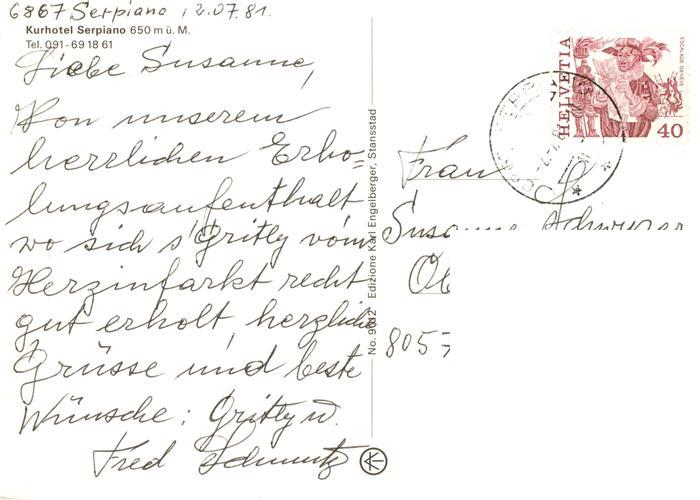 6867 Serpiano, 2.07.81.
Kurhotel Serpiano 650 m ü. M.
Tel. 091-69 18 61
Liebe Susanne,
Von unserem
herrlichen Erho-
lungsaufenthalt
wo sich s'Gritly vom
Herzinfarkt recht
gut erholt, herzliche
Grüsse und beste
Wünsche: Gritly u.
Fred Schmutz
Edizione Karl Engelberger, Stansstad
HELVETIA
ESCALADE GENÈVE
40
Frau
Susanne
805